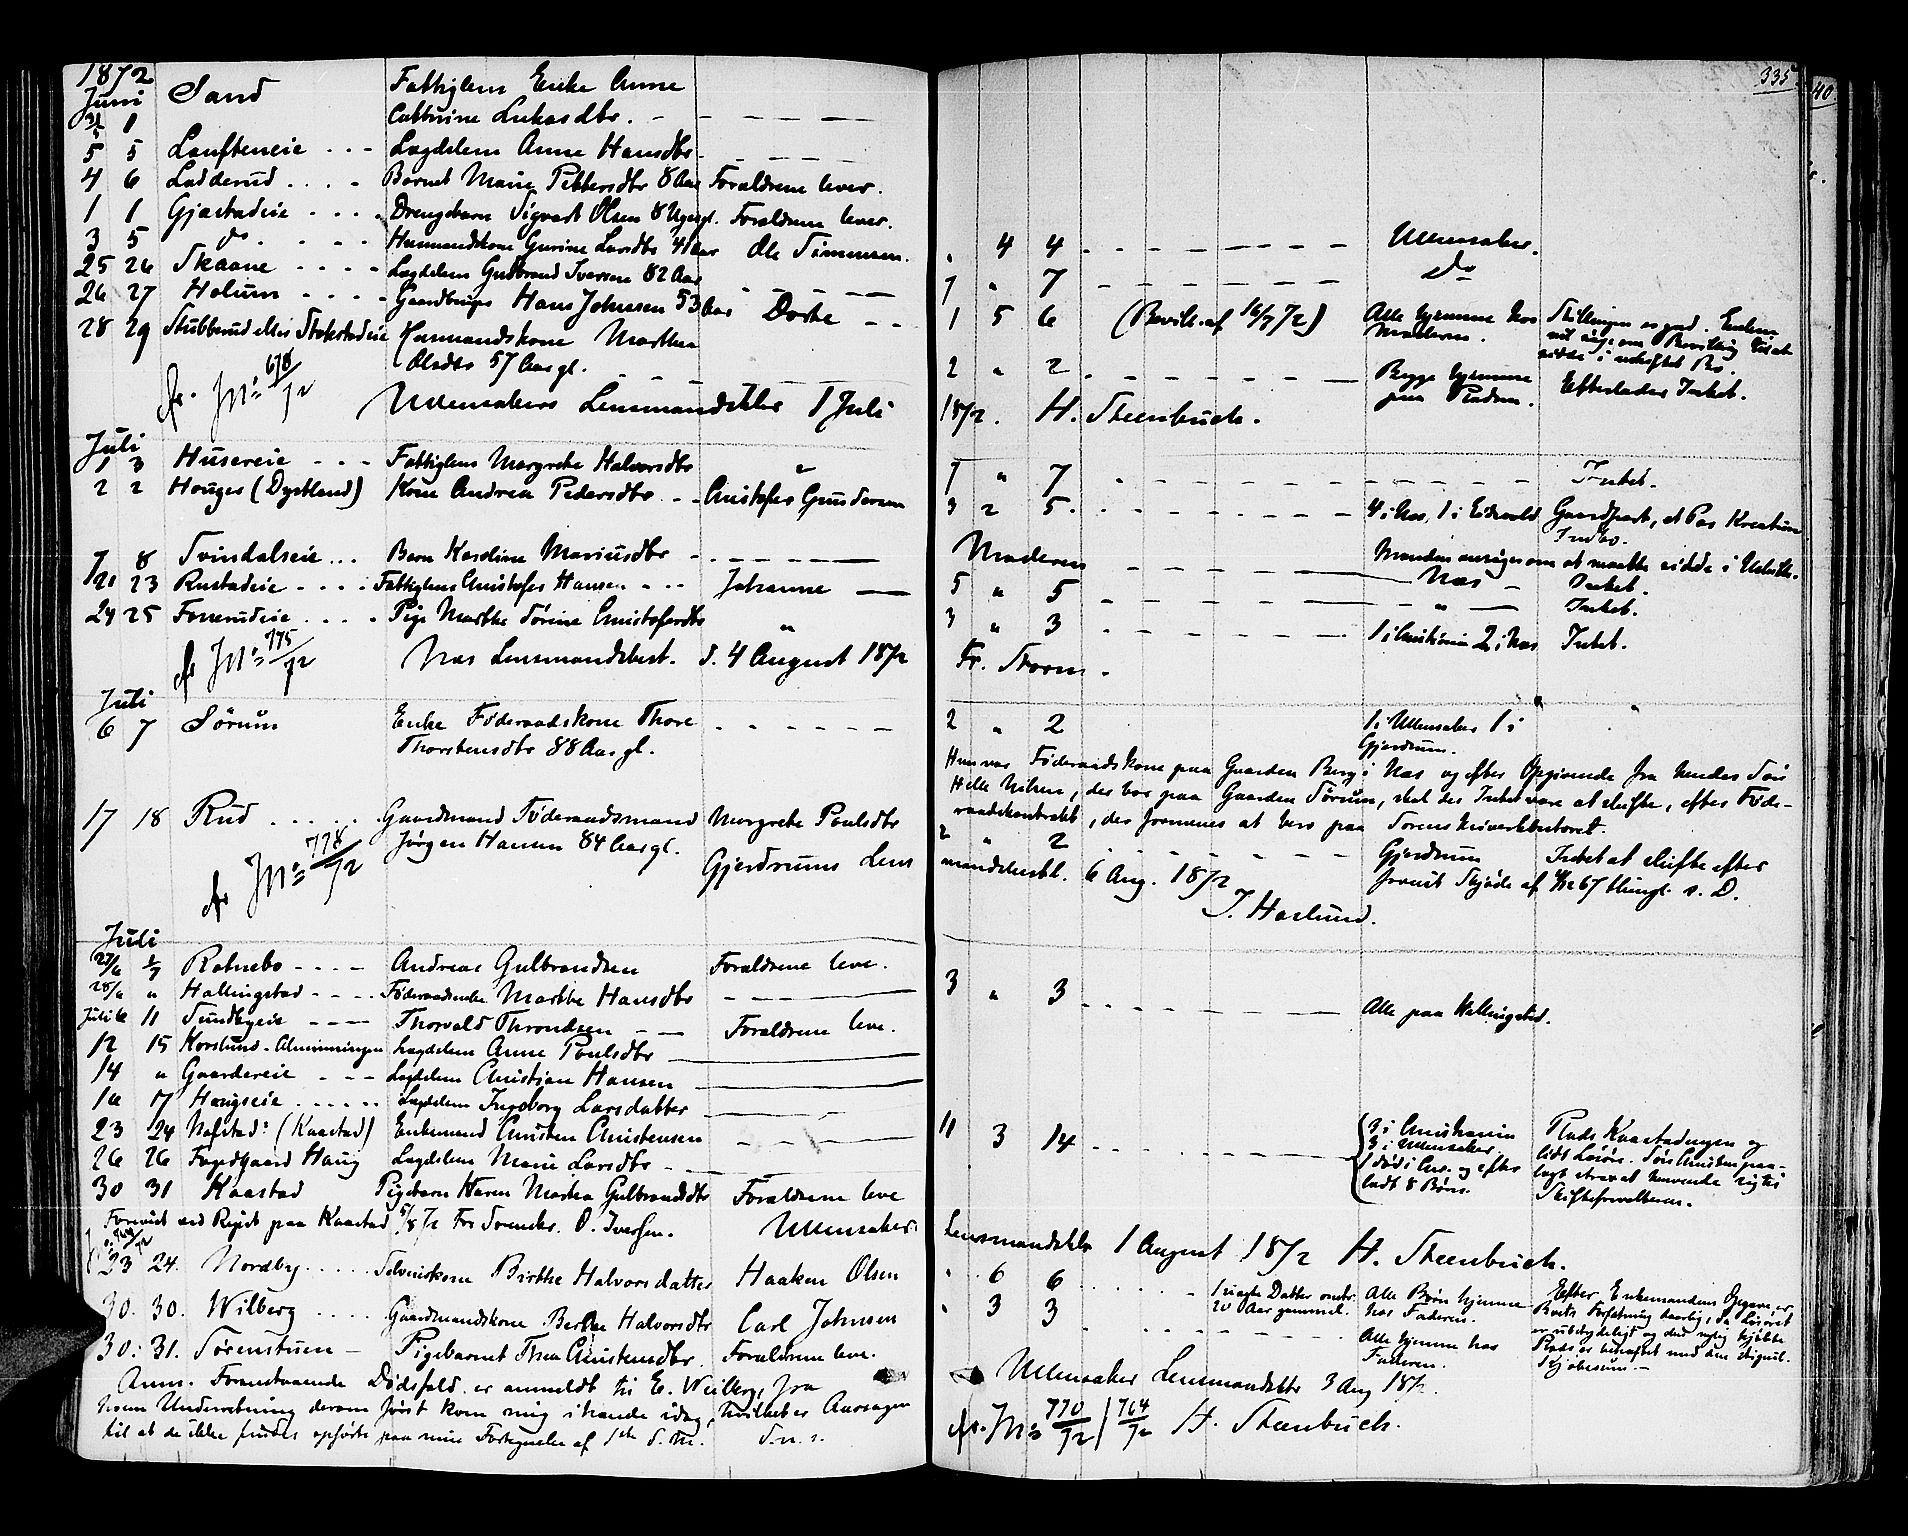 335
40
1872
Juni Sand Fattiglem Enke Anne
31/5 1 Cathrine Lukasdtr. - - - - -
5 5 Laufteneie - - - Lægdslem Anne Hansdtr. - - - -
4 6 Ladderud . . . . Barnet Marie Pettersdtr 8 Aar Forældrene lever.
1 1 Gjestadeie - - - - Drengebarn Sigvart Olsen 8 Uger gl. Forældrene lever.
3 5 do. - - - Husmandskone Gurine Larsdtr 41 Aar Ole Simensen. " 4 4 - - - - - Ullensaker.
25 26 Skaane - - - - Lægdslem Gudbrand Iversen 82 Aar - - - - 7 " 7 - - - - - do
26 27 Holum - - - - Gaardbruger Hans Johnsen 53 Aar Dorthe - - 1 5 6 (Bevill. af 16/7 72) Alle hjemme hos Moderen. Stillingen er god. Enken
vil søge om Bevilling til at
sidde i uskiftet Bo.
28 29 Stubberud eller Stokstadeie Husmandskone Marthea
Olsdtr 57 Aar gl. - - - - 2 " 2 - - - - - Begge hjemme
paa Pladsen. Efterlader Intet.
cfr. JN: 678/72 Ullensakers Lensmandsktr 1 Juli 1872. H. Steenbuch.
Juli
1 3 Husereie - - - Fattiglem Margrethe Halvorsdtr " 7 " 7 - - - - - Intet.
2 2 Houger (Dystland) Kone Andrea Pedersdtr - - Christofer Gundersen 3 2 5. - - - - - 4 i Næs, 1 i Eidsvold Gaardpart, et Par Kreature
Indbo.
7 8 Tvindalseie ... Barn Karoline Mariusdtr - - - - - Moderen - - - - - Manden ansøger om at maatte sidde i Uskift.
21 23 Rustadeie - - - - Fattiglem Christofer Hansen - - - Johanne - 5 " 5 - - - - Næs - Intet.
24 25 Fonerudeie . . . . Pige Marthe Sørine Christofersdtr " 3 " 3 - - - - 1 i Christiania 2 i Næs Intet.
cfr JN: 775/72 Næs Lensmandsbest. d. 4 August 1872 Fr. Storm.
Juli
6 7 Sørum Enke Føderaadskone Thore
Thorstensdtr 88 Aar gl. - - - - - 2 " 2 1 i Ullensaker 1 i
Gjerdrum.
Hun var Føderaadskone paa Gaarden Berg i Næs og efter Opgivende fra hendes Søn
Helle Nilsen, der bor paa Gaarden Sørum, skal der Intet være at skifte, efter Føde-
raadskontrakt, der formenes at bero paa Sorenskriverkontoret.
17 18 Rud . . . . . Gaardmand Føderaadsmand Margrethe Poulsdtr
Jørgen Hansen 84 Aar gl. 2 " 2 - - - - - Gjerdrum Intet at skifte efter
forevist Skjøde af 67 thingl. s. D.
cfr JN: 778/72 Gjerdrums Lensmandsbest. 6 Aug. 1872
T. Haslund.
Juli
27/6 1/7 Ratnebo - - - - Andreas Gulbrandsen Forældrene leve.
28/6 " Hallingstad - - - - Føderaadsenke Marthe Hansdtr - - - - 3 " 3 - - - - - Alle paa Hallingstad.
Juli 6 11 Sundbyeie - - - - Thorvald Throndsen - - Forældrene leve.
12 15 Korslund-Alminningen Lægdslem Anne Poulsdtr
14 " Gaardereie - - - Lægdslem Christian Hansen
16 17 Haugseie . . . . . . Lægdslem Ingeborg Larsdatter
23 24 Nafstad: (Kaastad) Enkemand Christen Christensen - - - - 11 3 14 - - - - - 3 i Christiania
3 i Ullensaker
1 død i Chr. og efter
ladt 8 Børn. Plads Kaastadengen og
lidt Løsøre. Søn Christen paa-
lagt strax at henvende sig til
Skifteforvalteren.
26 26 Fagerdgaard Haug Lægdslem Marie Larsdtr -
30 31 Kaastad Pigebarn Karen Mathea Gulbrandsdtr Forældrene leve
Forevist ved Rejst paa Kaastad 5/8 72 For Sorenskr. O. Iversen. Ullensaker Lensmandsktr 1 August 1872 H. Steenbuch.
23 24. Nordby . . . . . Selveierkone Birthe Halvorsdatter Haaken Olsen " 6 6 . . . . - 1 ugift Datter under
20 Aar gammel. Alle Børn hjemme
hos Faderen. Efter Enkemandens Opgave, er
Boets Forfatning daarlig, da Løsøret
er ubetydeligt og den nylig kjøbte
Plads er beheftet med den skyld.
Kjøbesum. -
30. 30. Wilberg . . . . Gaardmandskone Berthe Halvorsdtr Carl Johnsen " 3 3 - - - - - Alle hjemme hos
Faderen.
30. 31. Sørenstuen - Pigebarnet Thea Christensdtr. Forældrene leve.
Anm. Foranstaaende Dødsfald er anmeldt til E. Wilberg, fra
hvem Underretning derom først kom mig ihænde idag, hvilket er Aarsagen
til at de ikke findes opførte paa min Fortegnelse af 1ste d. M. D. o. s.
Ullensaker Lensmandsktr 3 Aug 1872.
cfr. JN: 770/72 | 764/72 H. Steenbuch.